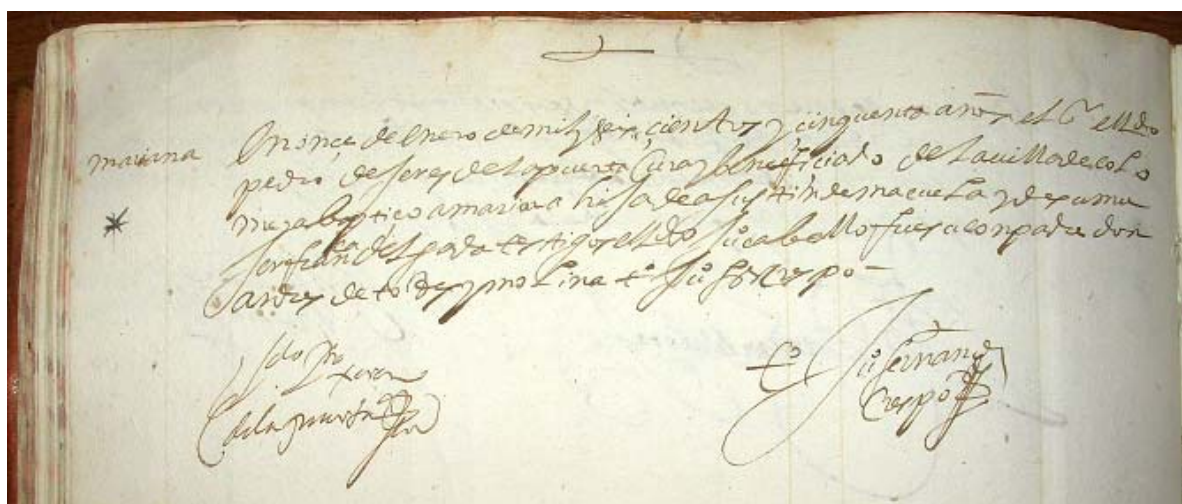 mariana
En onçe de enero de mil y seis çientos y çinquenta años el ldo
pedro de Jerez de la puerta Cura y benefficiado de la villa de colo
mera baptiço a mariana hija de agustin de maçuela y de su mu
Jer fran^ca delgada testigos el ldo Ju^o cabello fue su conpadre don
andres de molina t^o Ju^o frz crespo
ldo P^o
Xerez
de la puerta
t^o Ju^o fernandez
Crespo